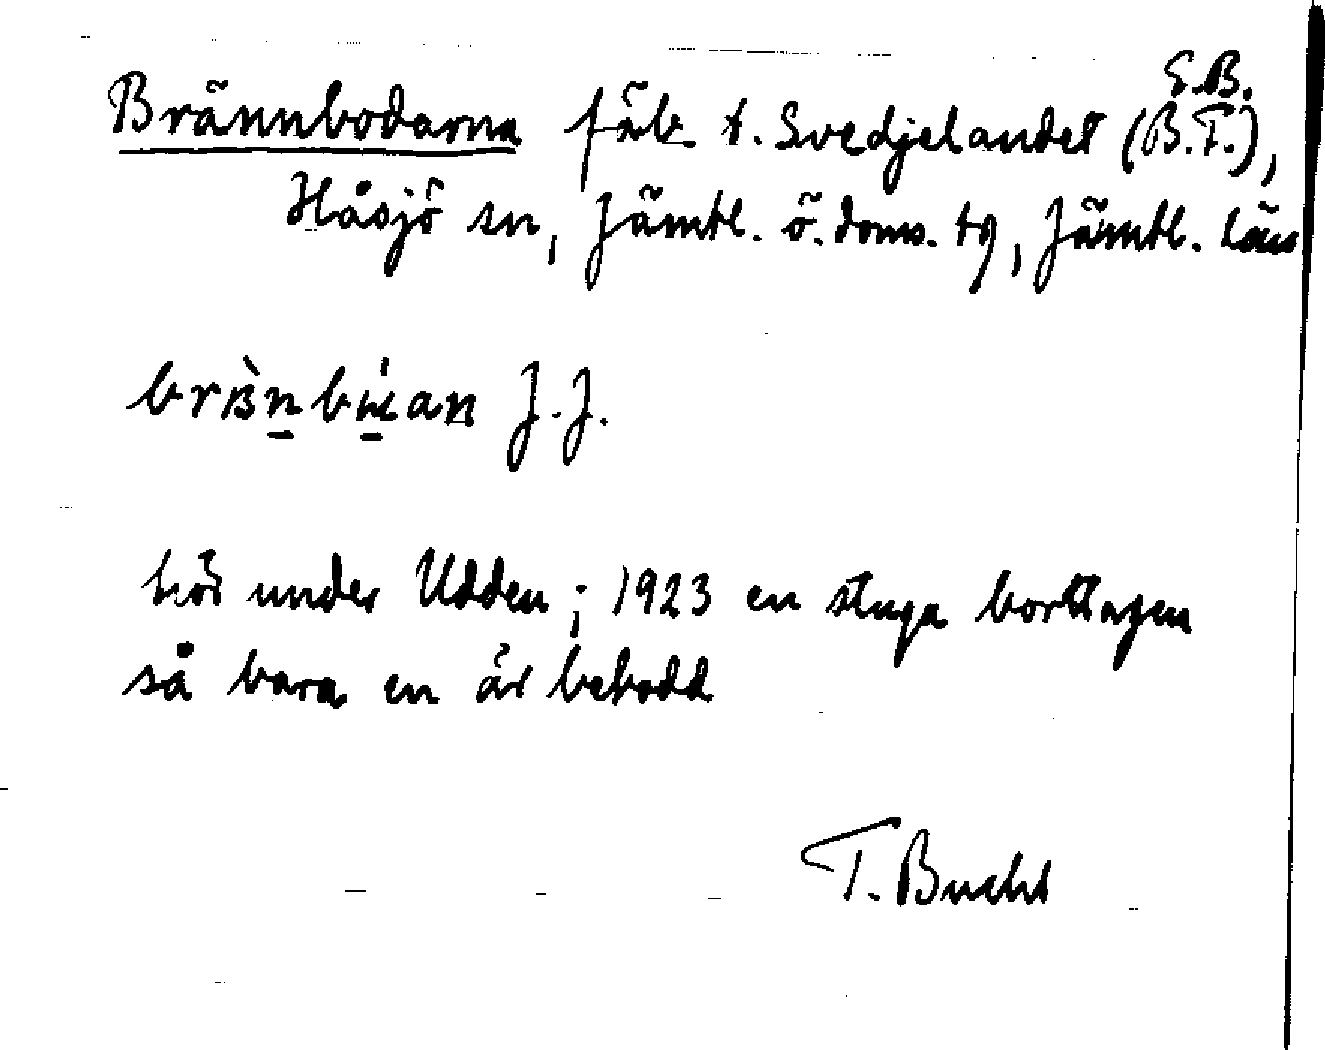 E.B.
Brännbodarna fäb. t. Svedjelandet (B.T.),
Håsjö sn, Jämtl. ö. doms. tg, Jämtl. län
J.J.
hör under Udden; 1923 en stuga borttagen
så bara en är bebodd
T. Bucht